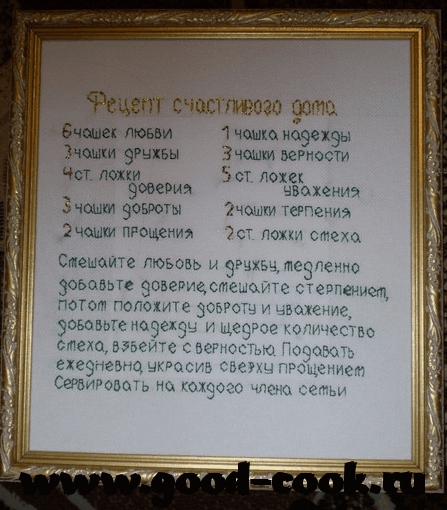 Рецепт счастливого дома
6 чашек любви
3 чашки дружбы
4 ст. ложки
доверия
3 чашки доброты
2 чашки прощения
1 чашка надежды
3 чашки верности
5 ст. ложек
уважения
2 чашки терпения
2 ст. ложки смеха
Смешайте любовь и дружбу, медленно
добавьте доверие, смешайте с терпением,
потом положите доброту и уважение,
добавьте надежду и щедрое количество
смеха, взбейте с верностью. Подавать
ежедневно, украсив сверху прощением
Сервировать на каждого члена семьи
www.good-cook.ru